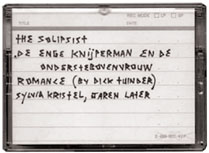 REC MODE □ SP □ EP
TITLE
THE SOLIPSIST
.DE ENGE KNIJPERMAN EN DE
ONDERSTEBOVENVROUW
ROMANCE (BY DICK TUINDER)
SYLVIA KRISTEL, KAREN LATER